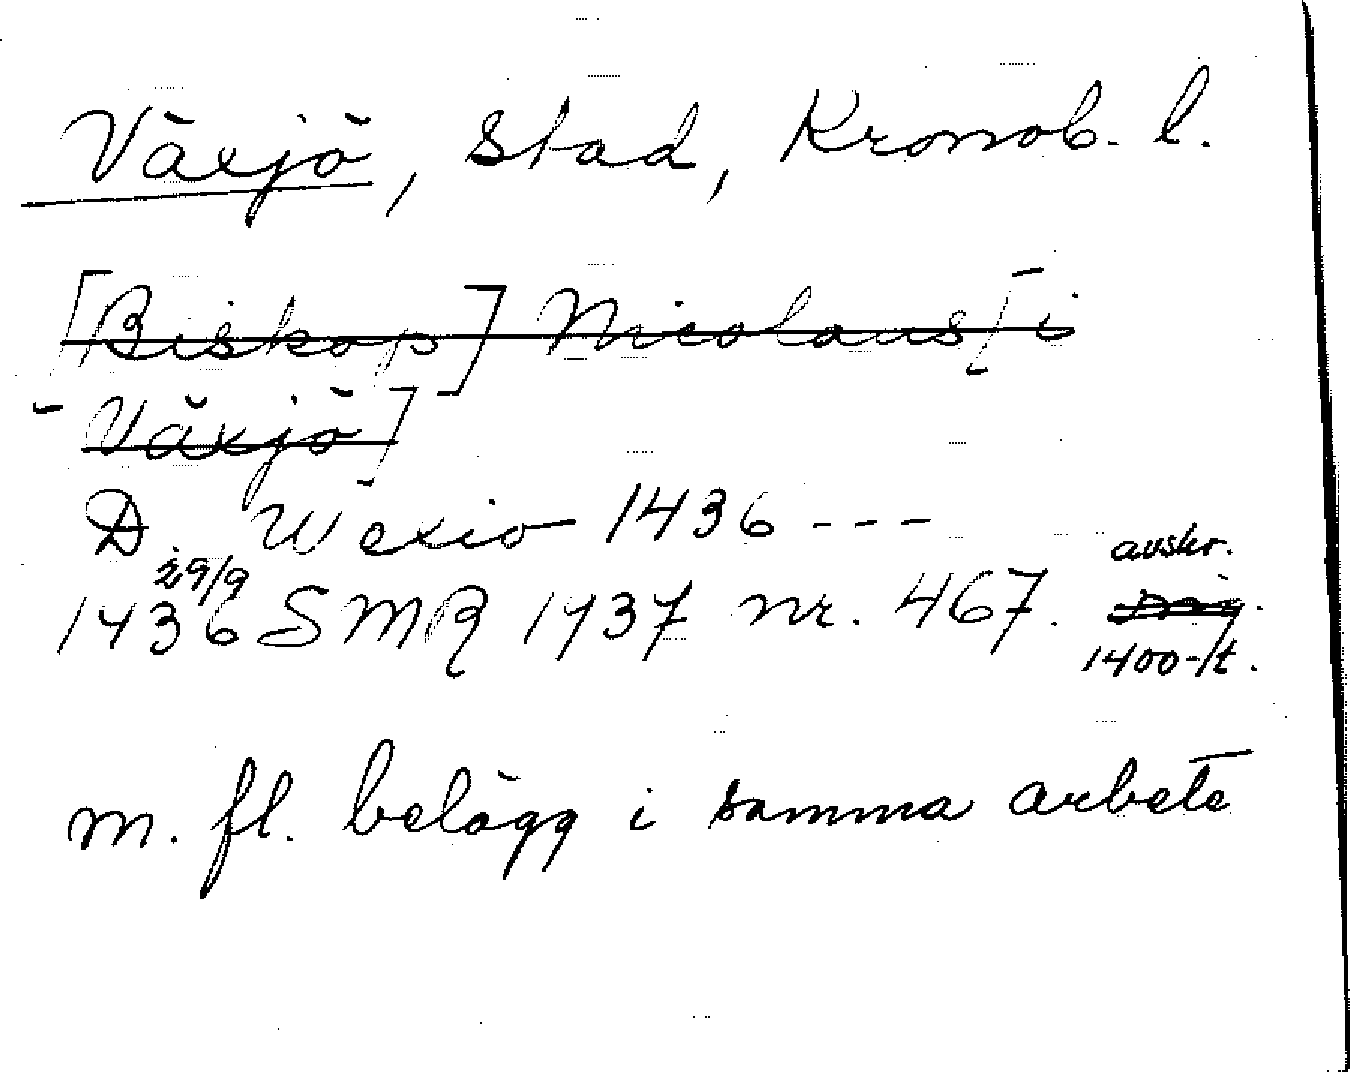 Växjö, stad, Kronob. l.
[Biskop] Nicolaus [i
Växjö]
D. Wexio 1436 - - -
29/9 avskr.
1436 SMR 1937 nr. 467.
1400-/t.
m. fl. belägg i samma arbete